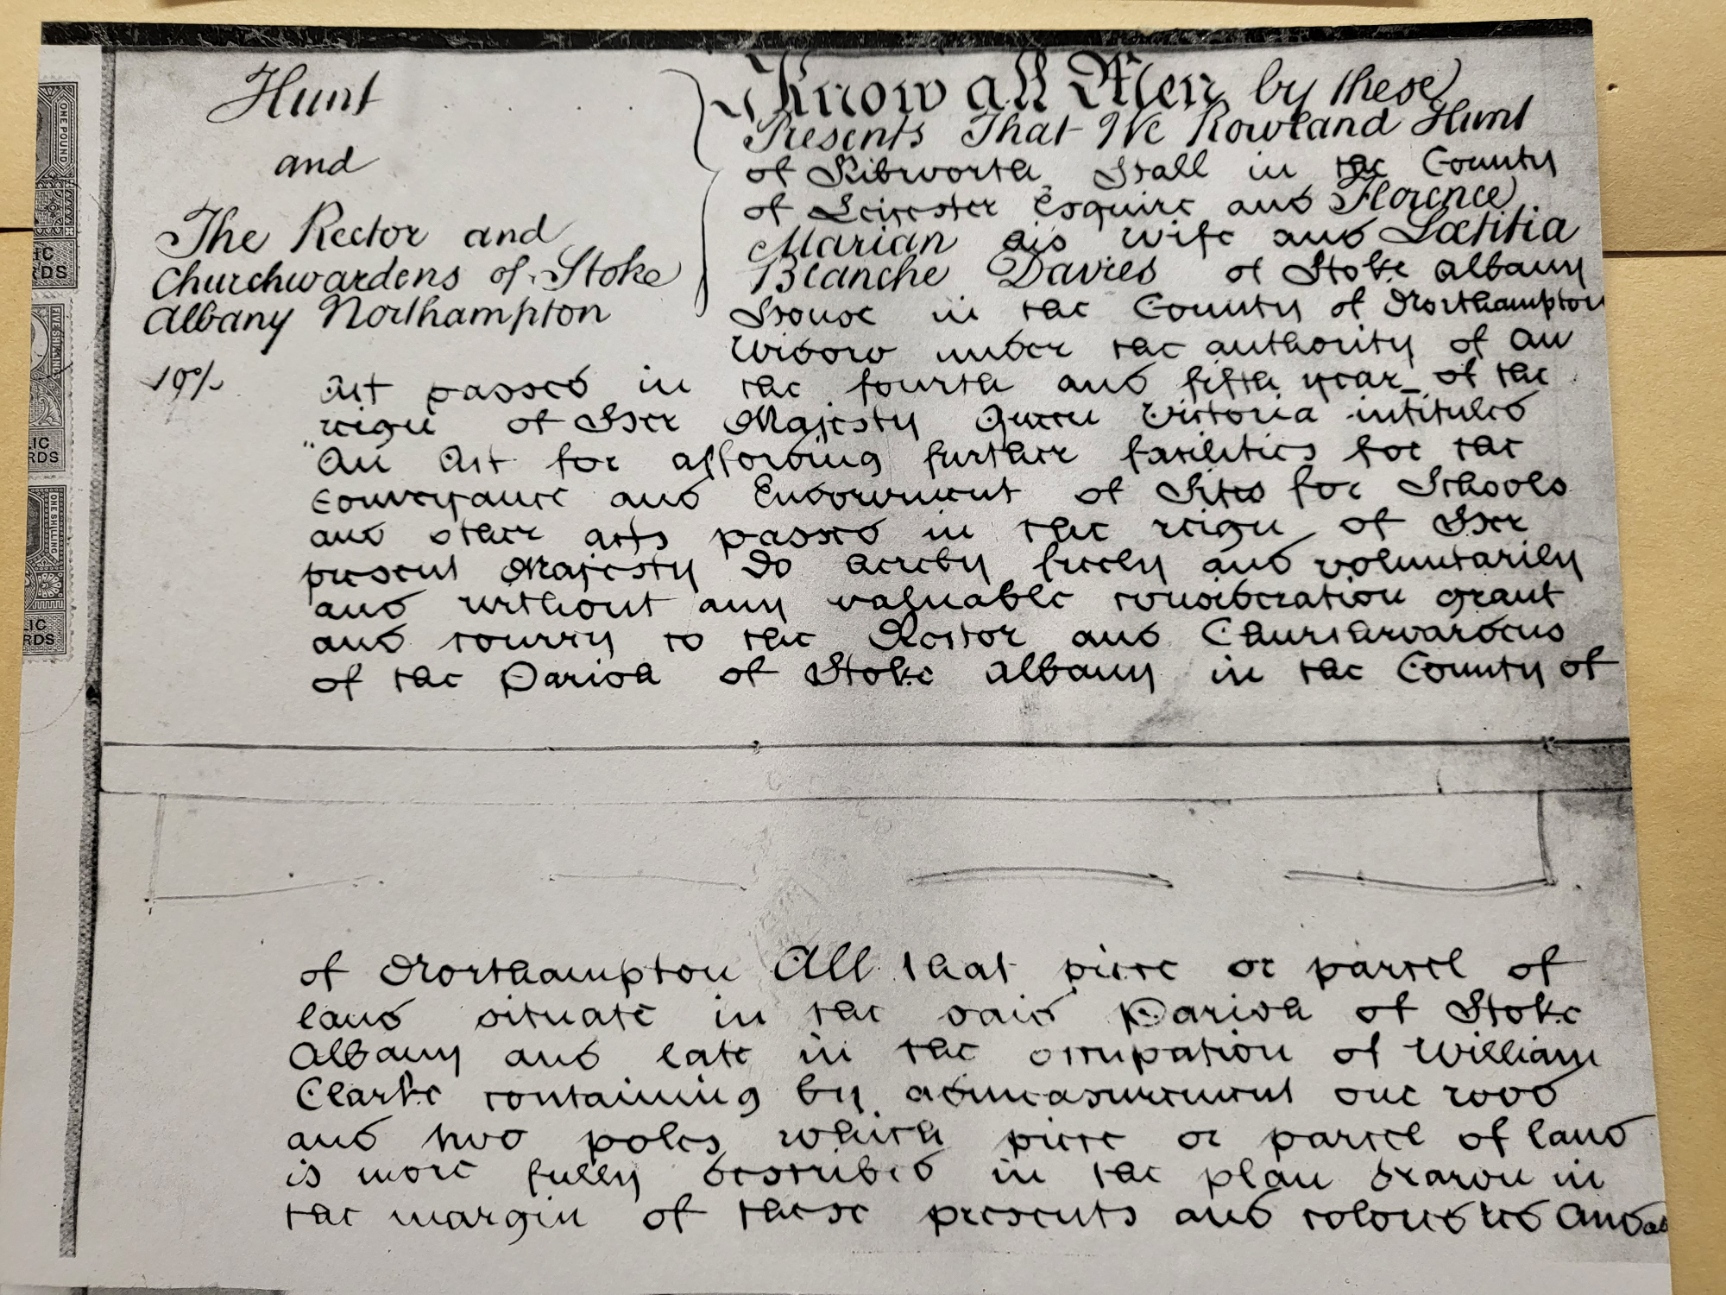 Hunt
and
The Rector and
Churchwardens of Stoke
Albany Northampton
Know all Men by these
Presents That We Rowland Hunt
of Kibworth Hall in the County
of Leicester Esquire and Florence
Marian his wife and Lœtitia
Blanche Davies of Stoke Albany
House in the County of Northampton
Widow under the authority of an
10/-
Act passed in the fourth and fifth year of the
reign of Her Majesty Queen Victoria intituled
"An Act for affording further facilities for the
Conveyance and Endowment of Sites for Schools
and other acts passed in the reign of Her
present Majesty Do hereby freely and voluntarily
and without any valuable consideration grant
and convey to the Rector and Churchwardens
of the Parish of Stoke Albany in the County of
of Northampton All that piece or parcel of
land situate in the said Parish of Stoke
Albany and late in the occupation of William
Clarke containing by admeasurement one rood
and two poles which piece or parcel of land
is more fully described in the plan drawn in
the margin of these presents and coloured red And
ONE POUND
IC
RDS
FIVE SHILLINGS
LIC
RDS
ONE SHILLING
LIC
RDS